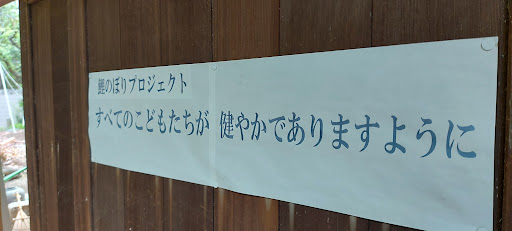 鯉のぼりプロジェクト
すべてのこどもたちが 健やかでありますように